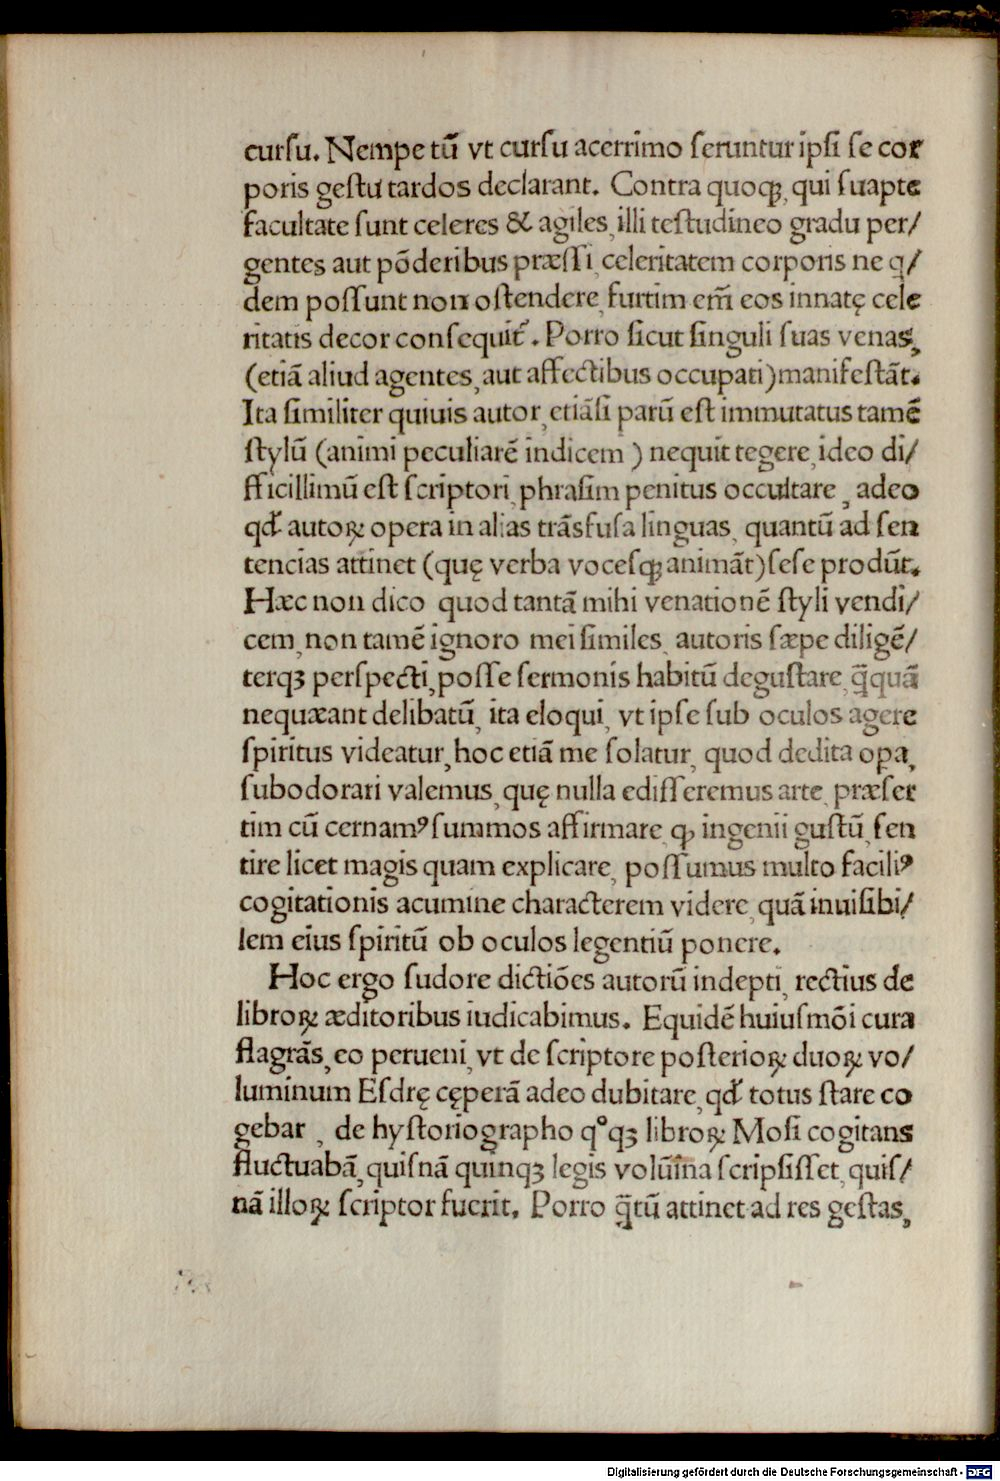 curſu. Nempe tū vt curſu acerrimo feruntur ipſi ſe cor
poris geſtu tardos declarant. Contra quoqꝫ, qui ſuapte
facultate ſunt celeres & agiles, illi teſtudineo gradu per/
gentes aut põderibus præſſi, celeritatem corporis ne q/
dem poſſunt non oſtendere, furtim em̃ eos innatę cele
ritatis decor conſequit᷑. Porro ſicut ſinguli ſuas venas,
(etiã aliud agentes, aut affectibus occupati) manifeſtãt.
Ita ſimiliter quiuis autor, etiãſi parũ eſt immutatus tamẽ
ſtylũ (animi peculiarẽ indicem) nequit tegere, ideo di/
fficillimũ eſt ſcriptori, phraſim penitus occultare, adeo
qď autoꝝ opera in alias trãſfuſa linguas, quantũ ad ſen
tencias attinet (quę verba voceſqꝫ animãt) ſeſe produ̅t.
Hæc non dico quod tantã mihi venationẽ ſtyli vendi/
cem, non tamẽ ignoro mei ſimiles, autoris ſæpe diligẽ/
terqꝫ perſpecti, poſſe ſermonis habitũ deguſtare, q̃quã
nequæant delibatũ, ita eloqui, vt ipſe ſub oculos agere
ſpiritus videatur, hoc etiã me ſolatur, quod dedita opa,
ſubodorari valemus, quę nulla ediſſeremus arte, præſer
tim cũ cernamꝰ ſummos affirmare, ꝙ ingenii guſtũ, ſen
tire licet magis quam explicare, poſſumus multo faciliꝰ
cogitationis acumine characterem videre, quã inuiſibi/
lem eius ſpiritũ ob oculos legentiũ ponere.
Hoc ergo ſudore dictiões autorũ indepti, rectius de
libroꝝ æditoribus iudicabimus. Equidẽ huiuſmõi cura
flagrãs, eo perueni, vt de ſcriptore poſterioꝝ duoꝝ vo/
luminum Eſdrę cęperã adeo dubitare, qď totus ſtare co
gebar, de hyſtoriographo qͦqꝫ libroꝝ Moſi cogitans
fluctuabã, quiſnã quinqꝫ legis volũina ſcripſiſſet, quiſ/
nã illoꝝ ſcriptor fuerit. Porro q̃tũ attinet ad res geſtas,
Digitalisierung gefördert durch die Deutsche Forschungsgemeinschaft - DFG